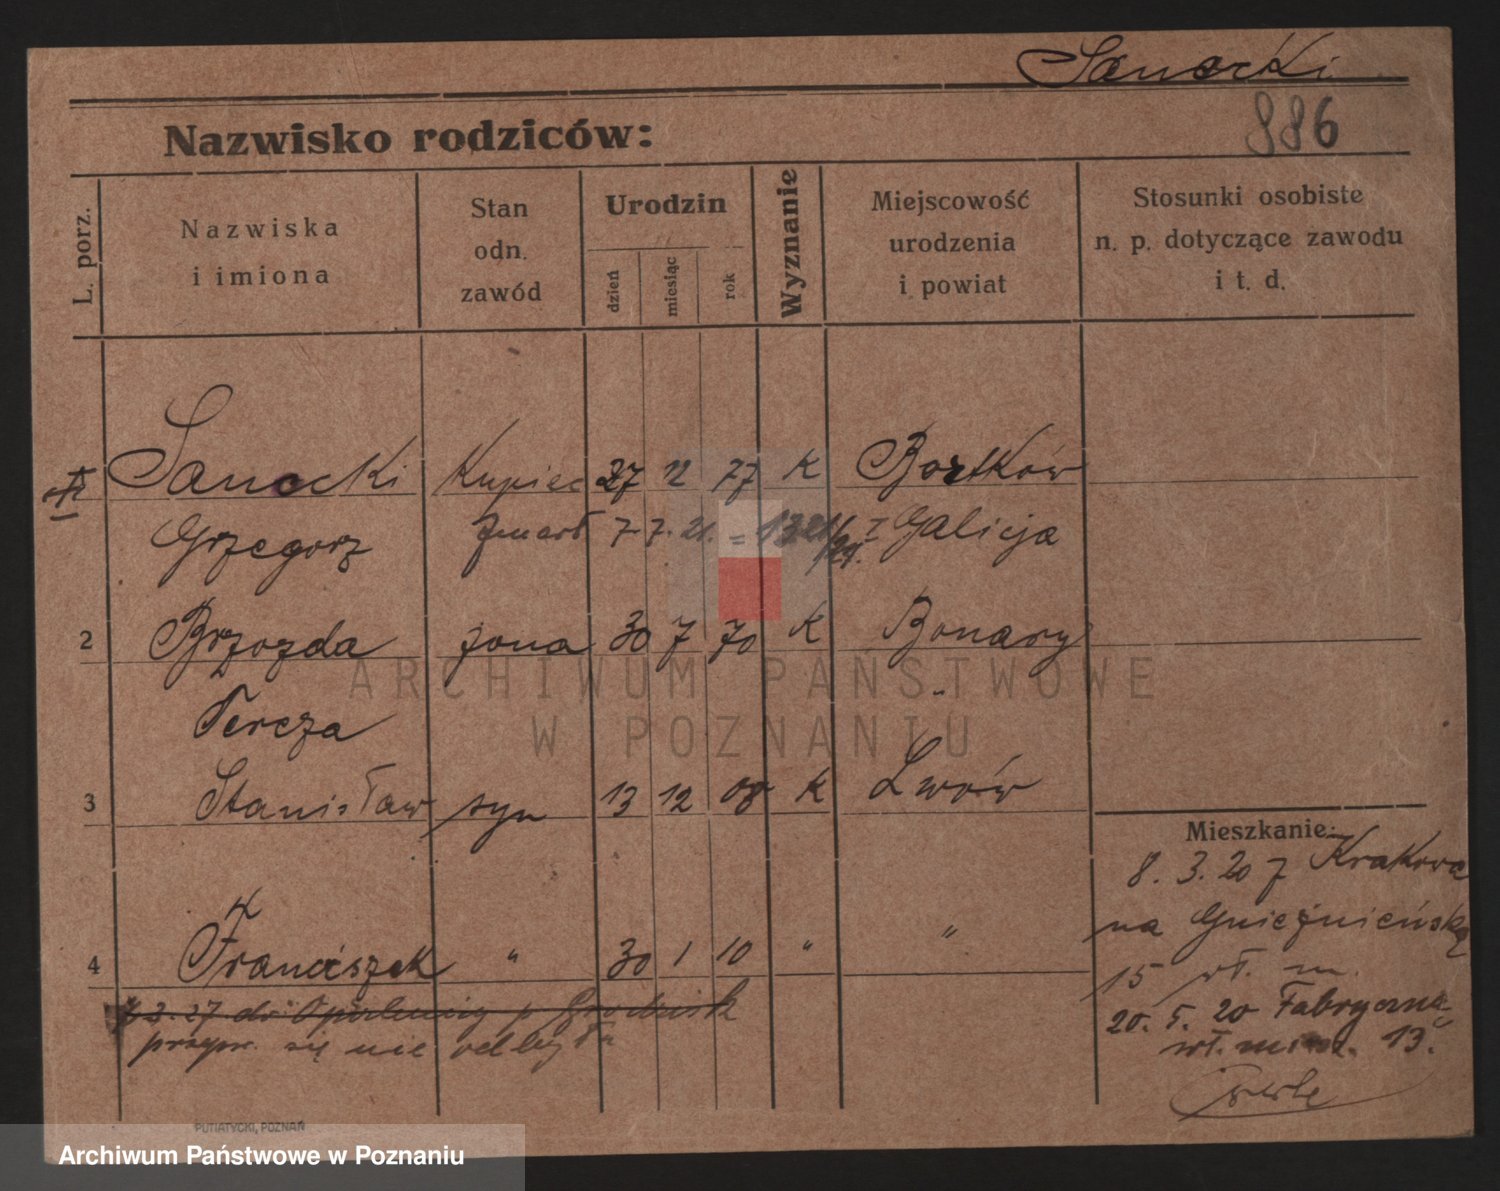 Sanocki
886
Nazwisko rodziców:
L. porz.
Nazwiska
i imiona
Stan
odn.
zawód
Urodzin
dzień
miesiąc
rok
Wyznanie
Miejscowość
urodzenia
i powiat
Stosunki osobiste
n. p. dotyczące zawodu
i t. d.
Sanocki Kupiec 27 12 77 K Bortków
Grzegorz zmarł 7 7. 21. = 1321/21. I Galicja
2 Brzozda żona 30 7 70 K Bonary
Tereza "
3 Stanisław syn 13 12 08 K Lwów
Mieszkanie:
8. 3. 20 z Krakowa
na Gnieźnieńską
4 Franciszek " 30 1 10 " "
15 wł. m.
7 3. 27 do Opalenicy p Grodzisk
20. 5. 20 Fabryczna
przepr. się nie odbyła
wł. miesz. 13.
PUTIATYCKI, POZNAŃ
ARCHIWUM PAŃSTWOWE
W POZNANIU
Archiwum Państwowe w Poznaniu